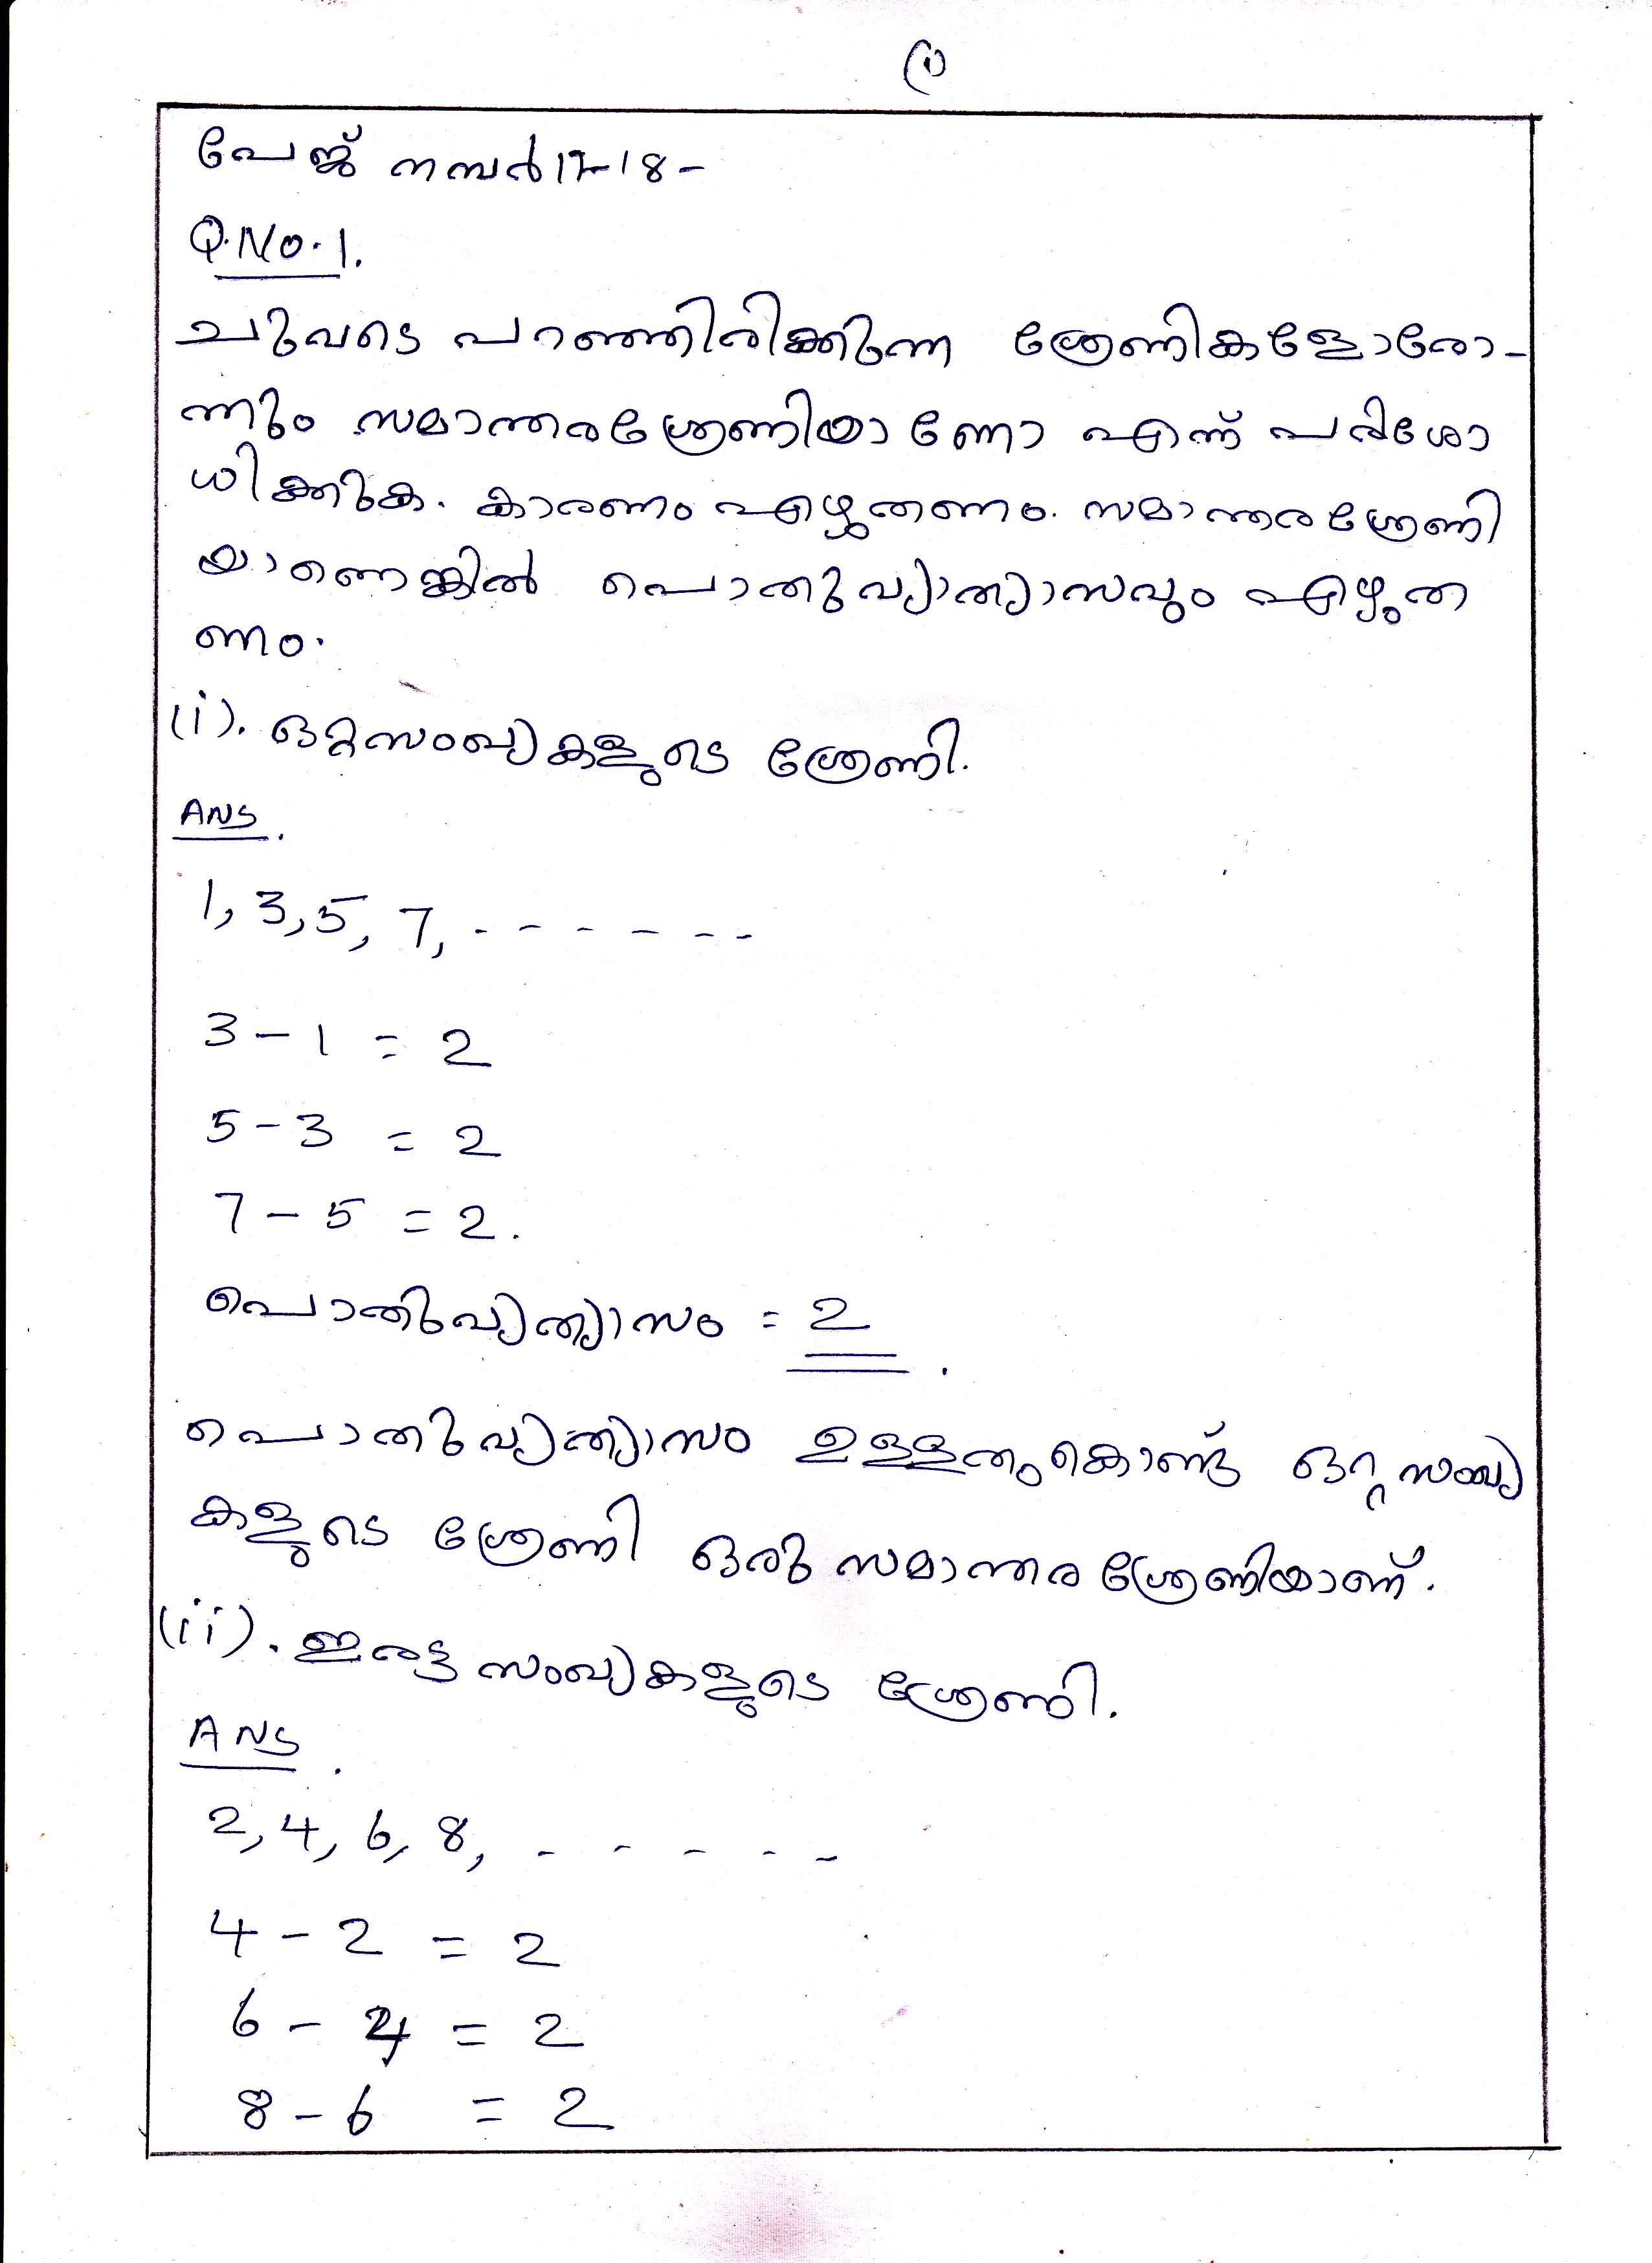 (1)
പേജ് നമ്പർ 17-18-
Q.No.1.
ചുവടെ പറഞ്ഞിരിക്കുന്ന ശ്രേണികളോരോ-
ന്നും സമാന്തരശ്രേണിയാണോ എന്ന് പരിശോ
ധിക്കുക. കാരണം എഴുതണം. സമാന്തരശ്രേണി
യാണെങ്കിൽ പൊതുവ്യത്യാസവും എഴുത
ണം.
(i). ഒറ്റസംഖ്യകളുടെ ശ്രേണി.
ANS.
1, 3, 5, 7, - - - - - - -
3 - 1 = 2
5 - 3 = 2
7 - 5 = 2.
പൊതുവ്യത്യാസം = 2.
പൊതുവ്യത്യാസം ഉള്ളതുകൊണ്ട് ഒറ്റസംഖ്യ
കളുടെ ശ്രേണി ഒരു സമാന്തരശ്രേണിയാണ്.
(ii). ഇരട്ട സംഖ്യകളുടെ ശ്രേണി.
ANS.
2, 4, 6, 8, - - - - -
4 - 2 = 2
6 - 4 = 2
8 - 6 = 2